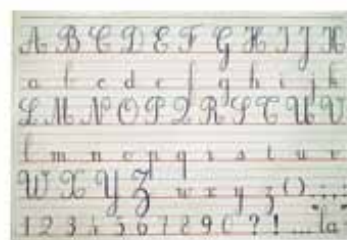 A B C D E F G H I J K
a b c d e f g h i j k
L M N O P Q R S T U V
l m n o p q r s t u v
W X Y Z w x y z ( ) . , : ;
1 2 3 4 5 6 7 8 9 0 ? ! ... la